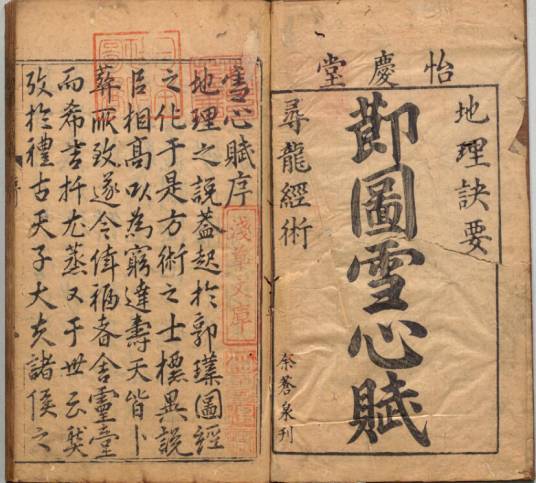 怡慶堂
地理訣要
節圖雪心賦
尋龍經術
泉刊
雪心賦序
淺草文庫
地理之說蓋起於郭璞圖經
之化于是方術之士標異說
相高以為窮達壽夭皆卜
葬所致遂令倖福者舍靈臺
而希吉又于世云
攷於禮古天子大夫諸侯之